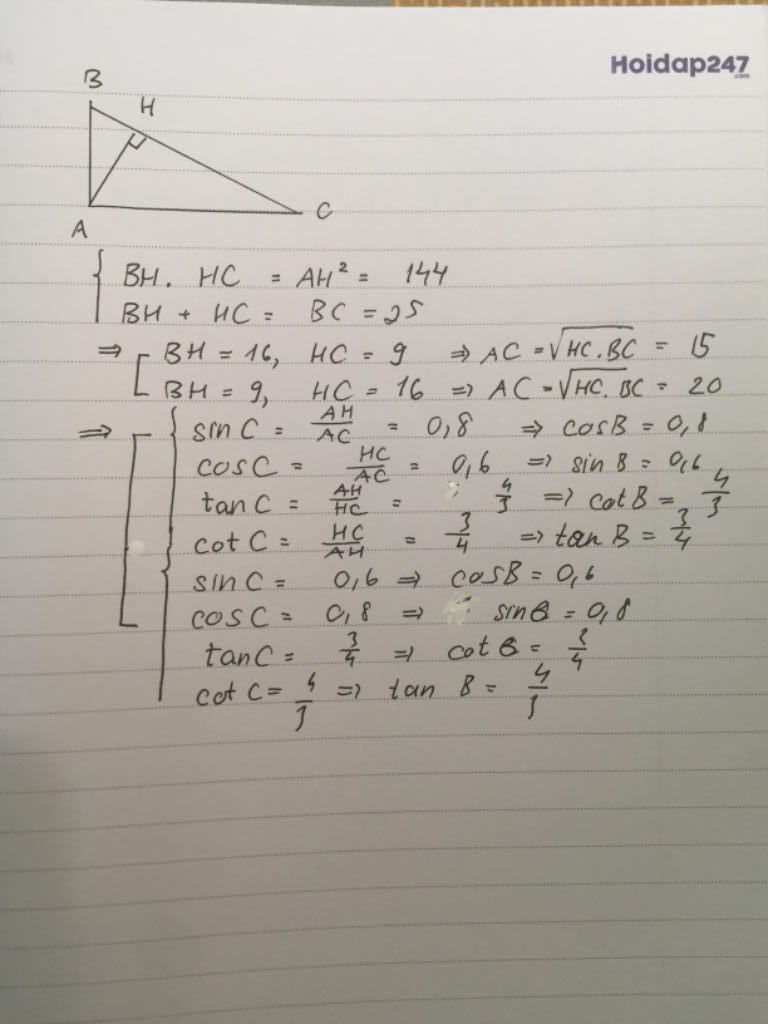 Hoidap247
.com
B
H
A
C
BH. HC = AH² = 144
BH + HC = BC = 25
⇒ BH = 16, HC = 9 ⇒ AC = √HC.BC = 15
BH = 9, HC = 16 ⇒ AC = √HC.BC = 20
⇒ sinC = AH/AC = 0,8 ⇒ cosB = 0,8
cosC = HC/AC = 0,6 ⇒ sinB = 0,6
tanC = AH/HC = 4/3 ⇒ cotB = 4/3
cotC = HC/AH = 3/4 ⇒ tanB = 3/4
sinC = 0,6 ⇒ cosB = 0,6
cosC = 0,8 ⇒ sinB = 0,8
tanC = 3/4 ⇒ cotB = 3/4
cotC = 4/3 ⇒ tan B = 4/3